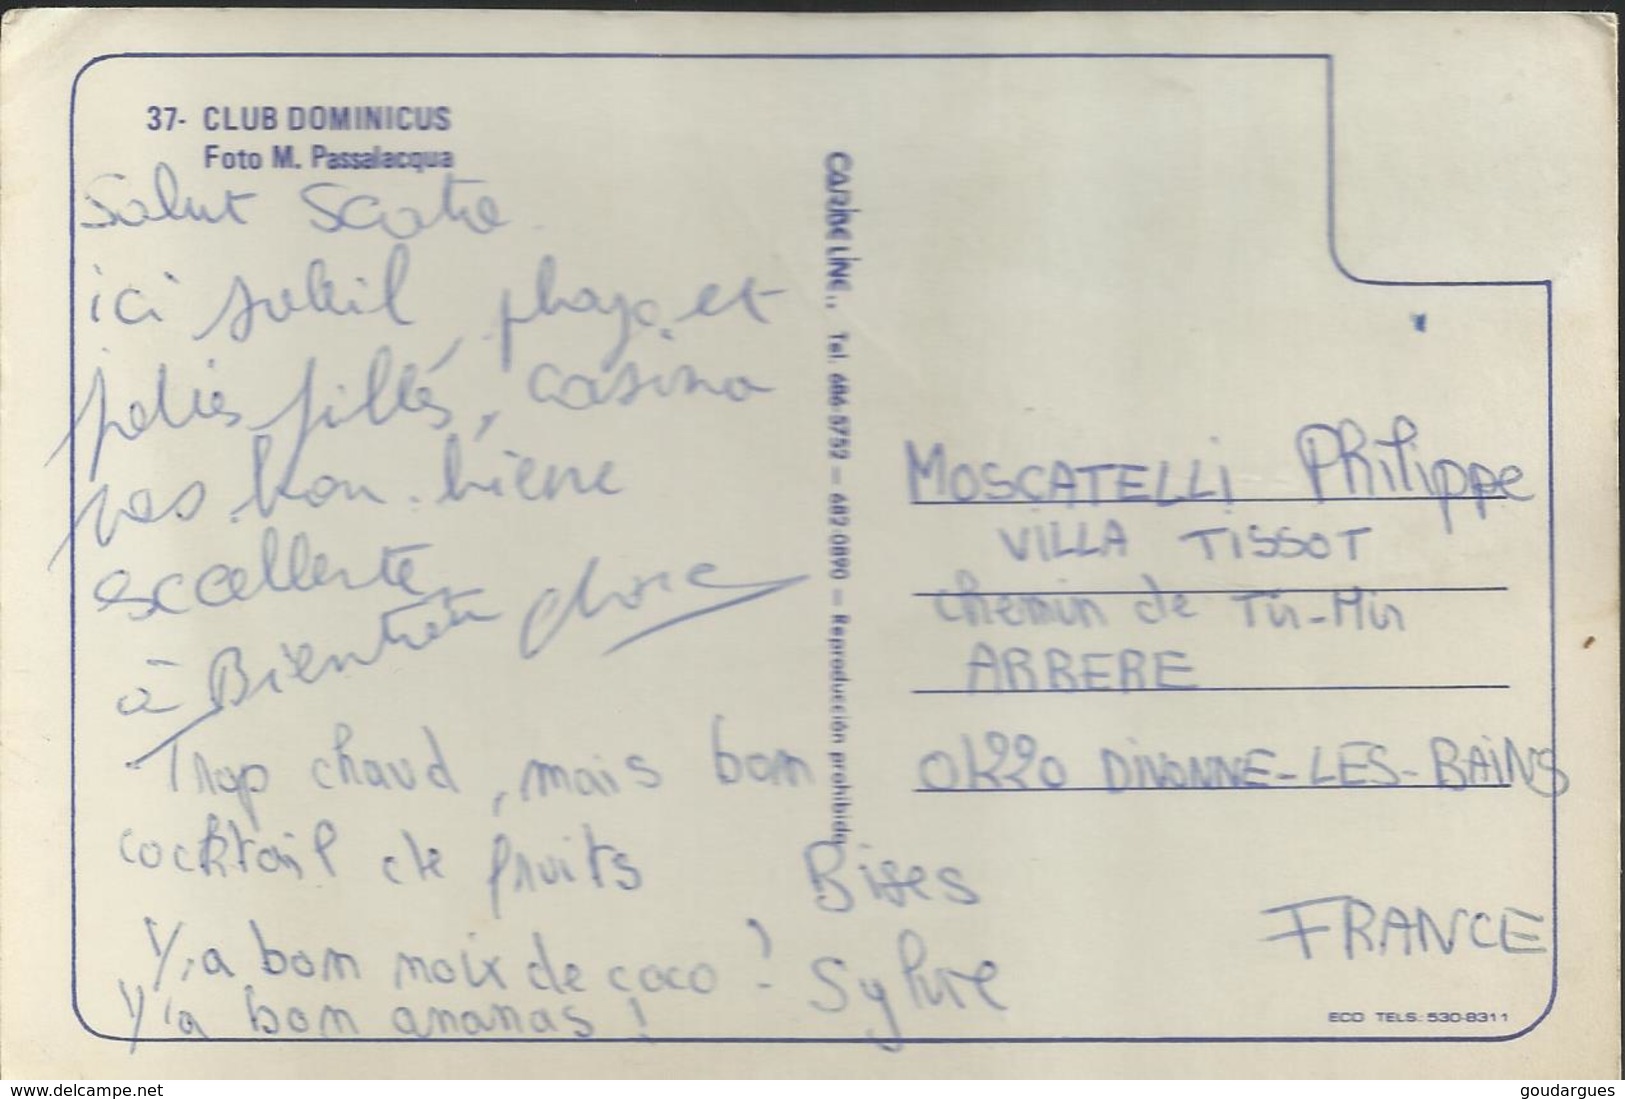 37- CLUB DOMINICUS
Foto M. Passalacqua
Salut
ici soleil, plage et
jolies filles, casino
pas bon. bière
excellente,
à Bientôt
Trop chaud, mais bon
cocktail de fruits
Y'a bon noix de coco !
Y'a bon ananas !
Bises
Sylvie
CARIBE LINE., Tel. 686-5752 - 682-0890 - Reproducción prohibida
MOSCATELLI PHILIPPE
VILLA TISSOT
chemin de
ARBERE
01220 DIVONNE-LES-BAINS
FRANCE
ECO TELS: 530-8311
www.delcampe.net
goudargues